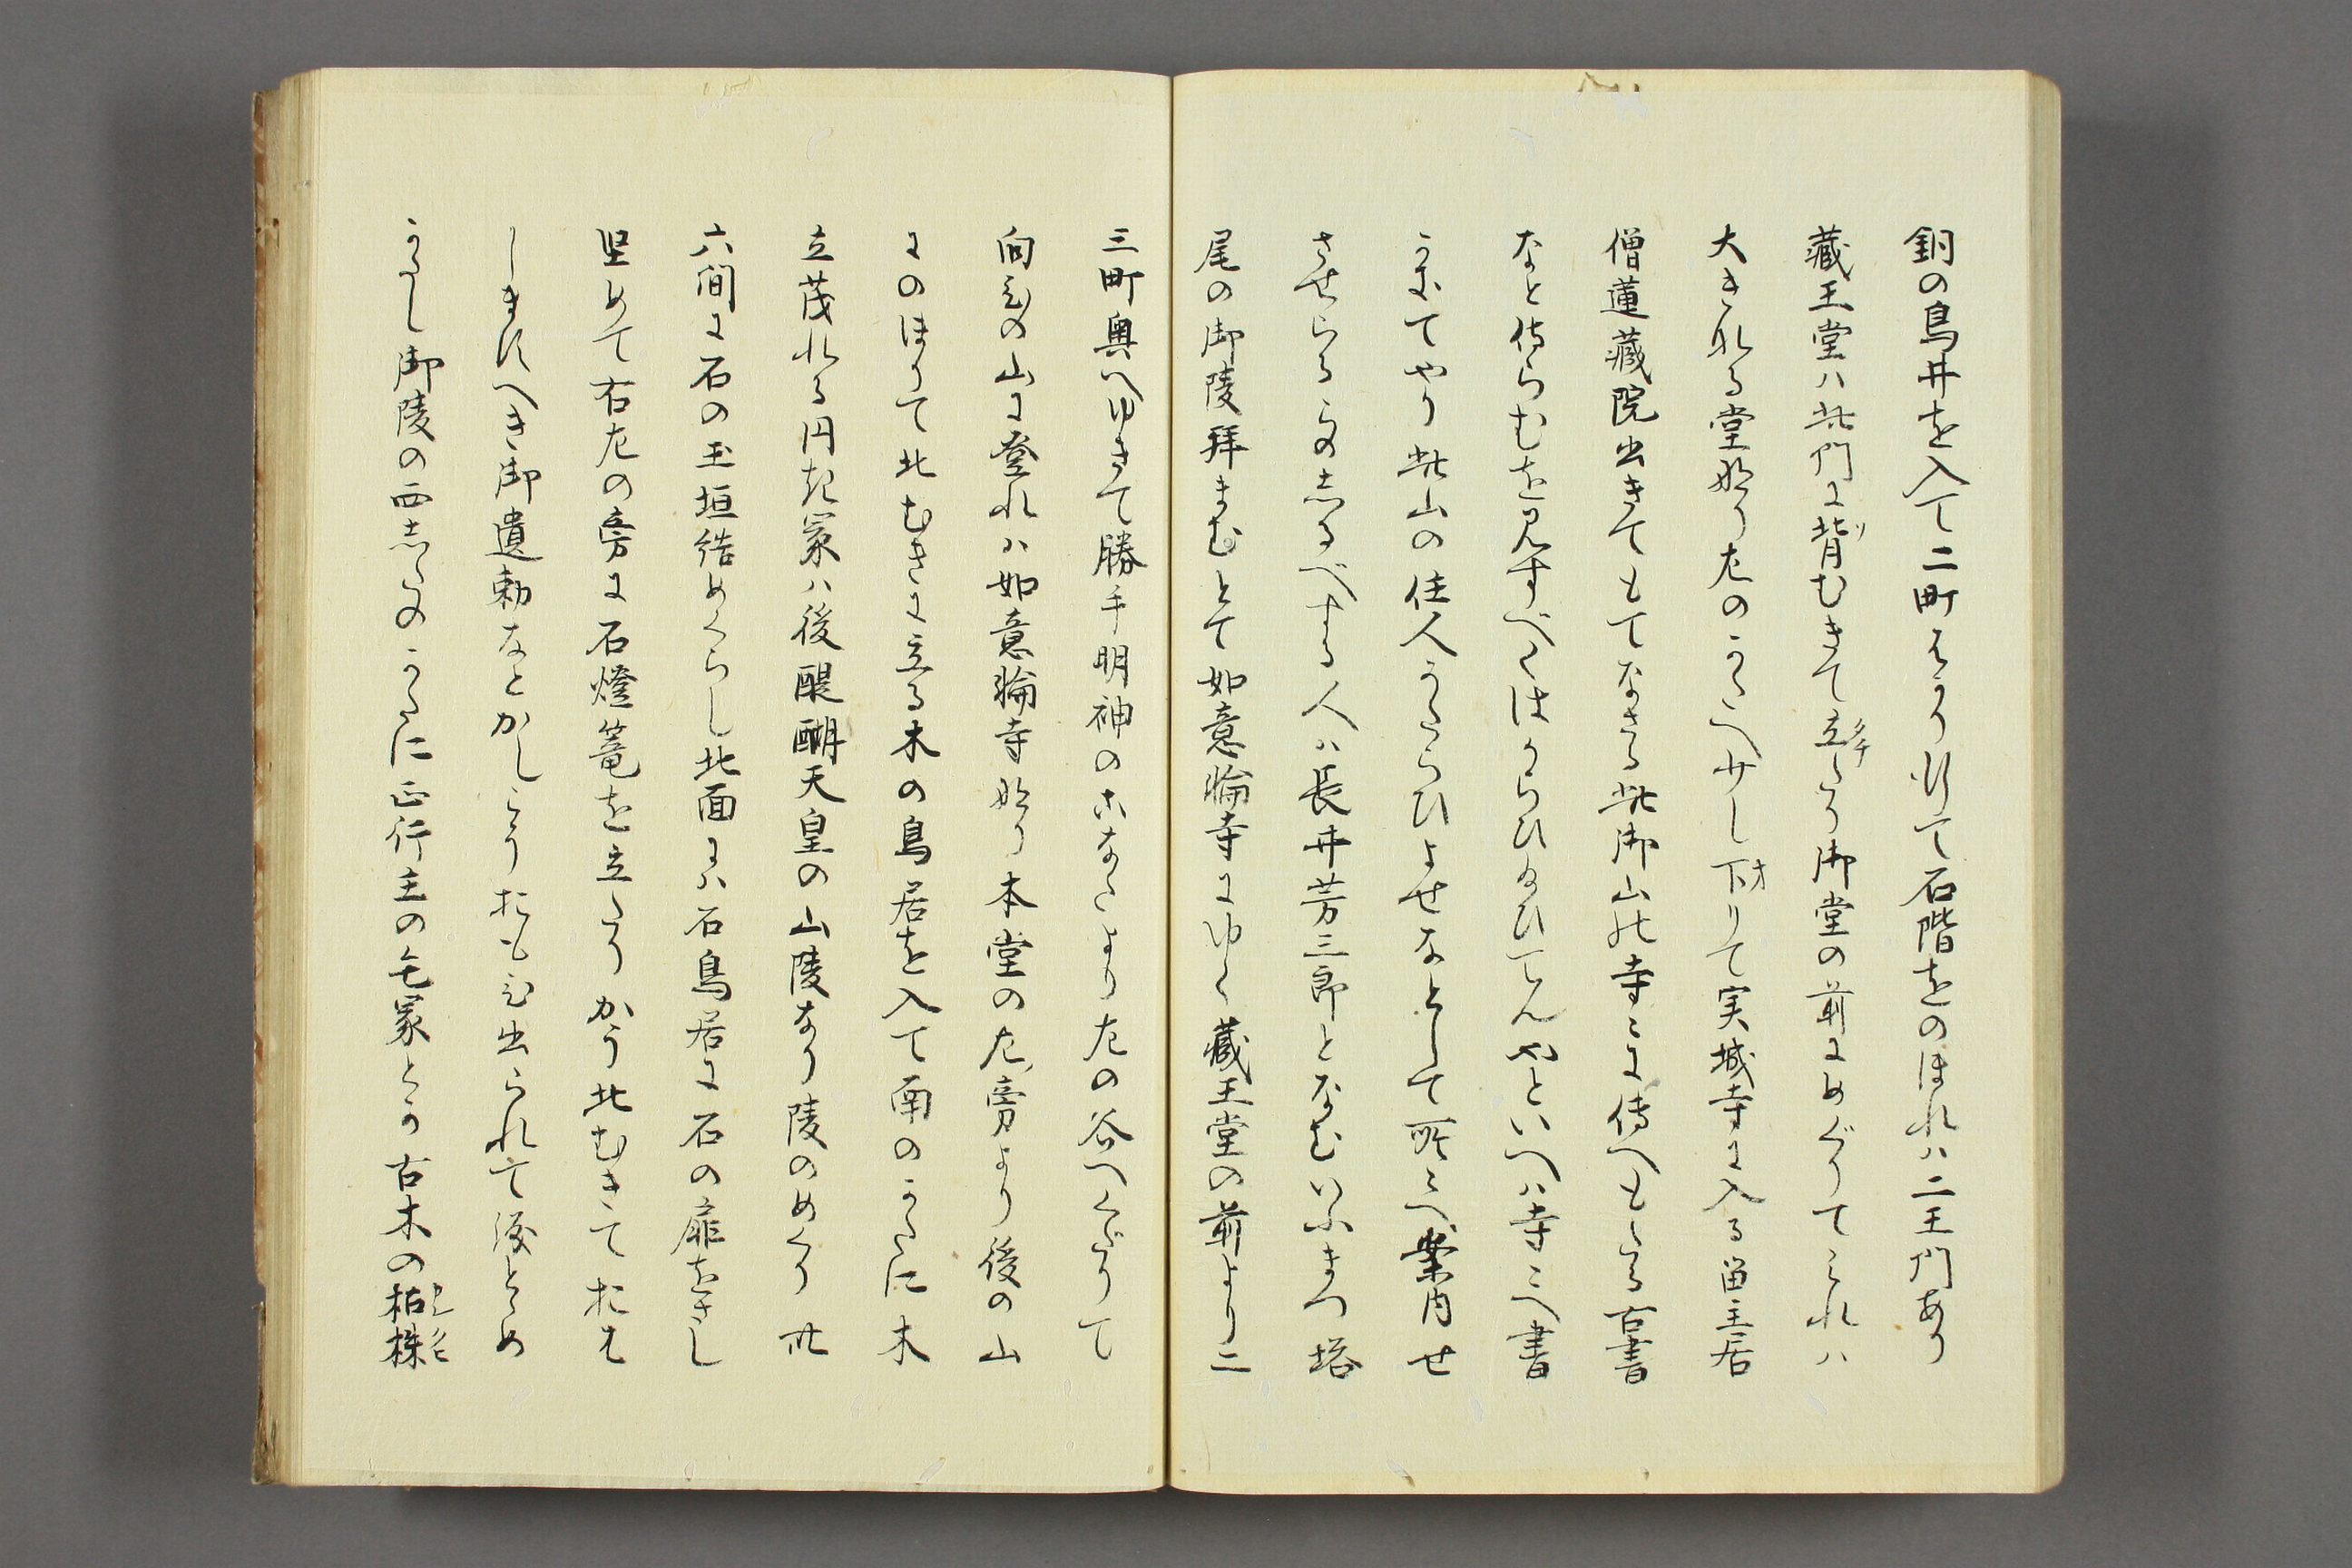 銅の鳥井を入て二町はかり行て石階をのほれハ二王門あり
蔵王堂ハ此門に背むきて立たり御堂の前にめぐりてみれハ
大きなる堂なり左のかたへ少し下りて実城寺に入る留主居
僧蓮蔵院出きてもてなさる此御山の寺ミに傳へもたる古書
なと侍らむを見すべくはからひ給ひてんやといへハ寺ミへ書
かきてやり此山の住人かたらひよせなとして所ミへ案内せ
させらる その志るべする人ハ長井芳三郎となむいふまつ塔
尾の御陵拜まむとて如意輪寺にゆく蔵王堂の前より二
三町奥へゆきて勝手明神のこなたより左の谷へくだりて
向ひの山に登れハ如意輪寺なり本堂の左傍より後の山
にのほりて北むきに立る木の鳥居を入て南のかたに木
立茂れる円き冢ハ後醍醐天皇の山陵なり陵のめくり廿
六間に石の玉垣結めくらし北面にハ石鳥居に石の扉をさし
堅めて右左の旁に石燈篭を立たりかう北むきておは
しますへき御遺勅なとかしこうおもひ出られて涙とゝめ
かたし御陵の西志りのかたに正行主の毛冢とか古木の枯株